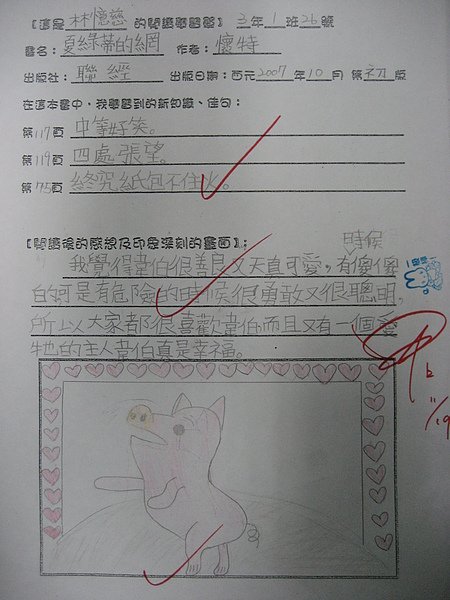 【這是 林憶慈 的閱讀學習單】 三年1班26號
書名：夏綠蒂的網 作者：懷特
出版社：聯經 出版日期：西元2007年10月 第初版
在這本書中，我學習到的新知識、佳句：
第117頁 中等好笑。
第119頁 四處張望。
第75頁 終究紙包不住火。
【閱讀後的感想及印象深刻的畫面】：
時候
我覺得韋伯很善良又天真可愛，有傻傻
白的可是有危險的時候很勇敢又很聰明，
所以大家都很喜歡韋伯而且又有一個愛
牠的主人韋伯真是幸福。
11/19